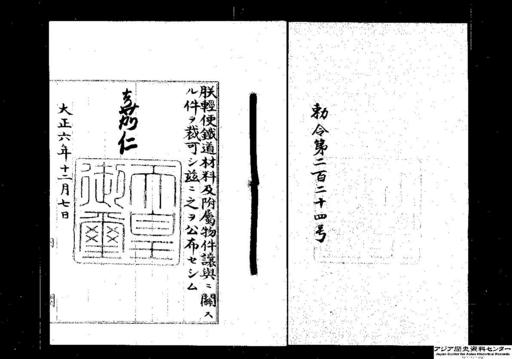 勅令第二百二十四号
朕輕便鐵道材料及附屬物件讓與ニ關ス
ル件ヲ裁可シ茲ニ之ヲ公布セシム
嘉仁
天皇御璽
大正六年十二月七日
アジア歴史資料センター
Japan Center for Asian Historical Records